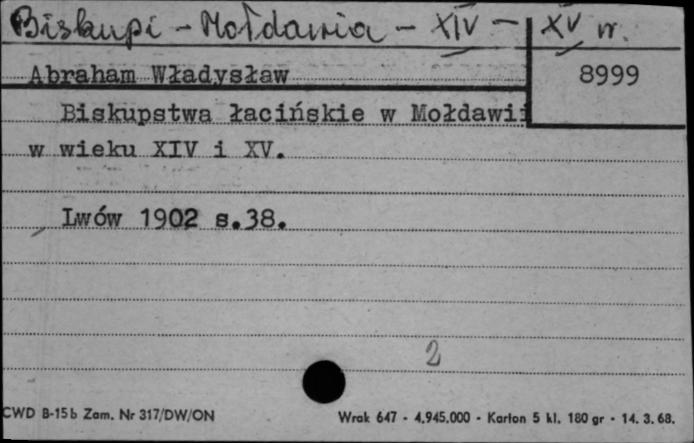 Biskupi - Mołdawia - XIV - XV w.
Abraham Władysław
8999
Biskupstwa łacińskie w Mołdawii
w wieku XIV i XV.
Lwów 1902 s.38.
2
CWD B-15b Zam. Nr 317/DW/ON
Wrak 647 - 4.945.000 - Karton 5 kl. 180 gr - 14. 3. 68.